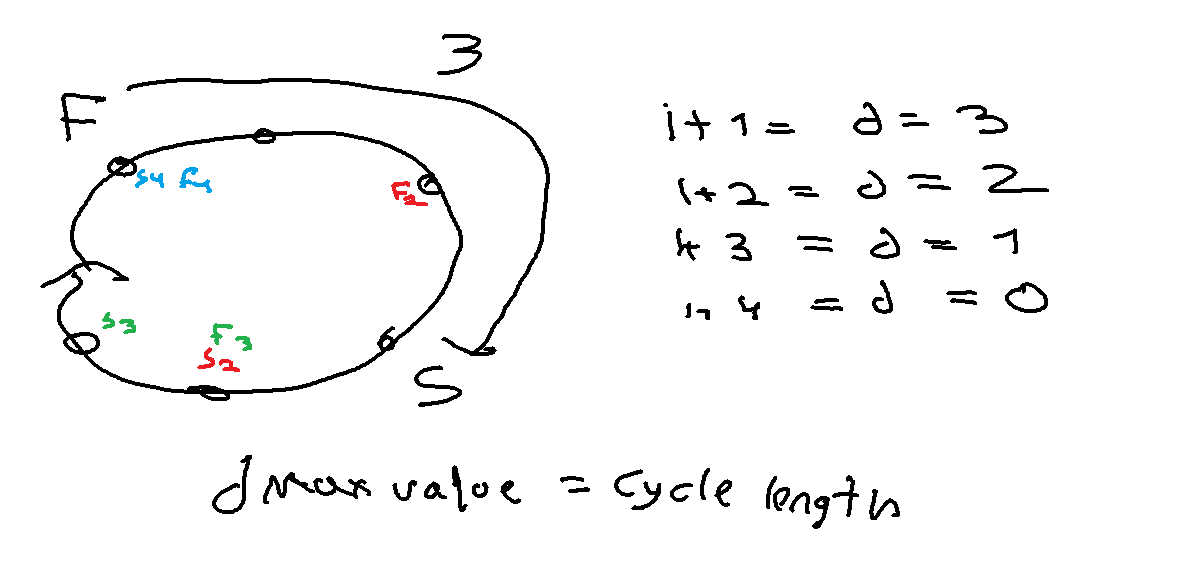 3
F
S4 F4
F2
S3
F3
S2
S
i+1 = d = 3
i+2 = d = 2
i+ 3 = d = 1
4 = d = 0
d max value = cycle length